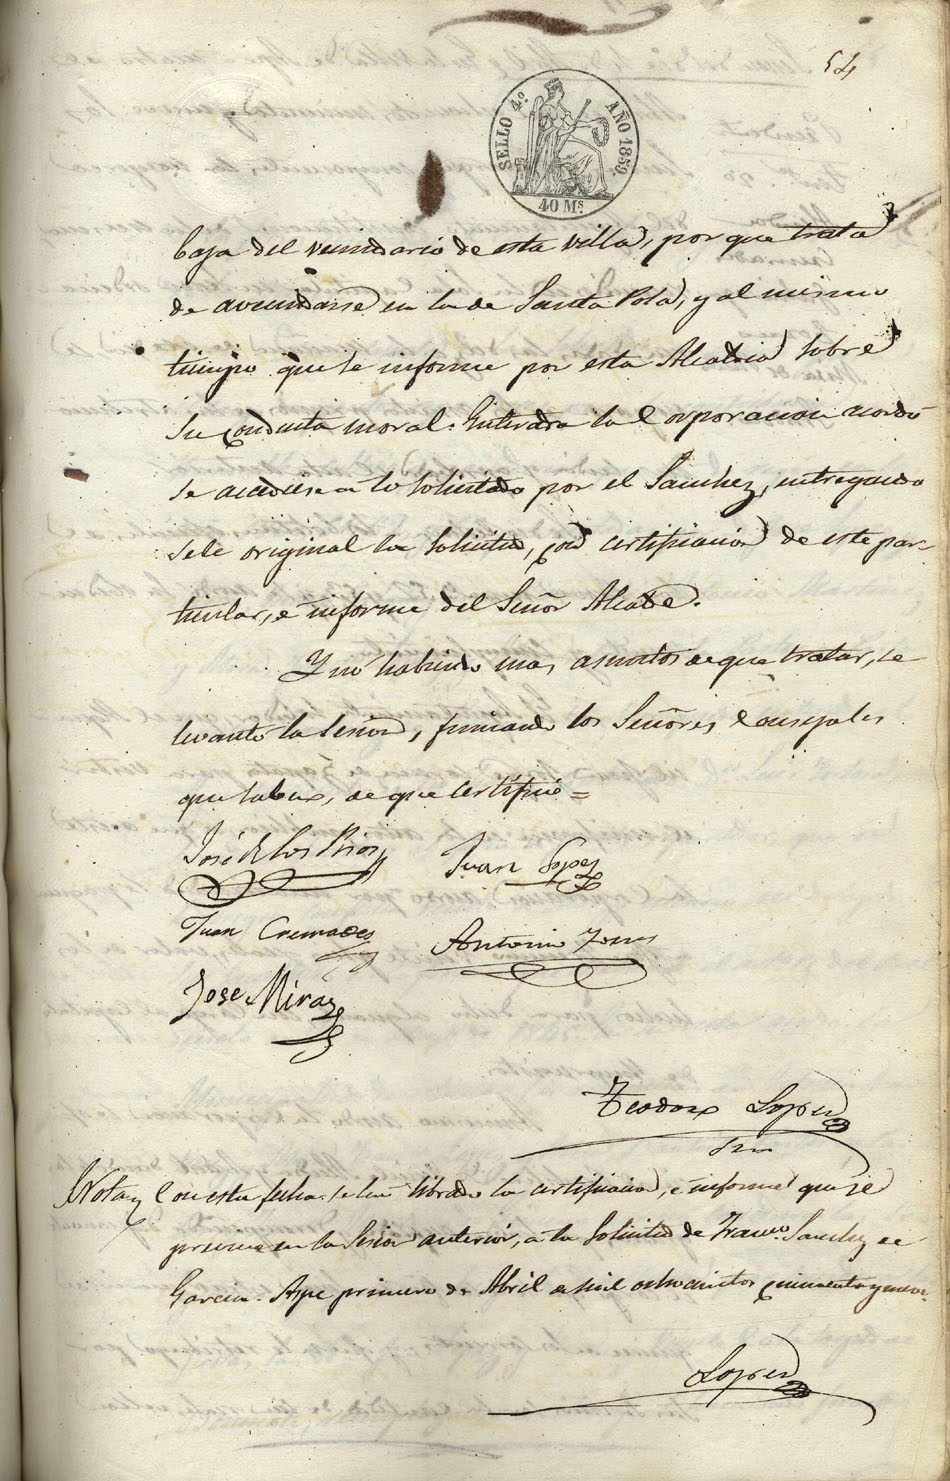 54
SELLO 4º AÑO 1859.
40 Ms.
baja del vecindario de esta villa, por que trata
de avecindarse en la de Santa Pola, y al mismo
tiempo que se informe por esta Alcaldia sobre
su conducta moral. Enterada la Corporacion acordó
se accediese a lo solicitado por el Sanchez, entregando
sele original la solicitud, con certificacion de este par-
ticular, e informe del Señor Alcalde.
Y no habiendo mas asuntos de que tratar, se
levantó la sesion, firmando los Señores Concejales
que saben, de que certifico =
José de los Rios
Juan Lopez
Juan Cremades
Antonio Torres
Jose Mira
Teodoro Lopez
Srio
Nota Con esta fecha se ha librado la certificacion, e informe que se
previene en la Sesion anterior, a la solicitud de Franco. Sanchez de
Garcia. Aspe primero de Abril de mil ochocientos cincuenta y nueve.
Lopez